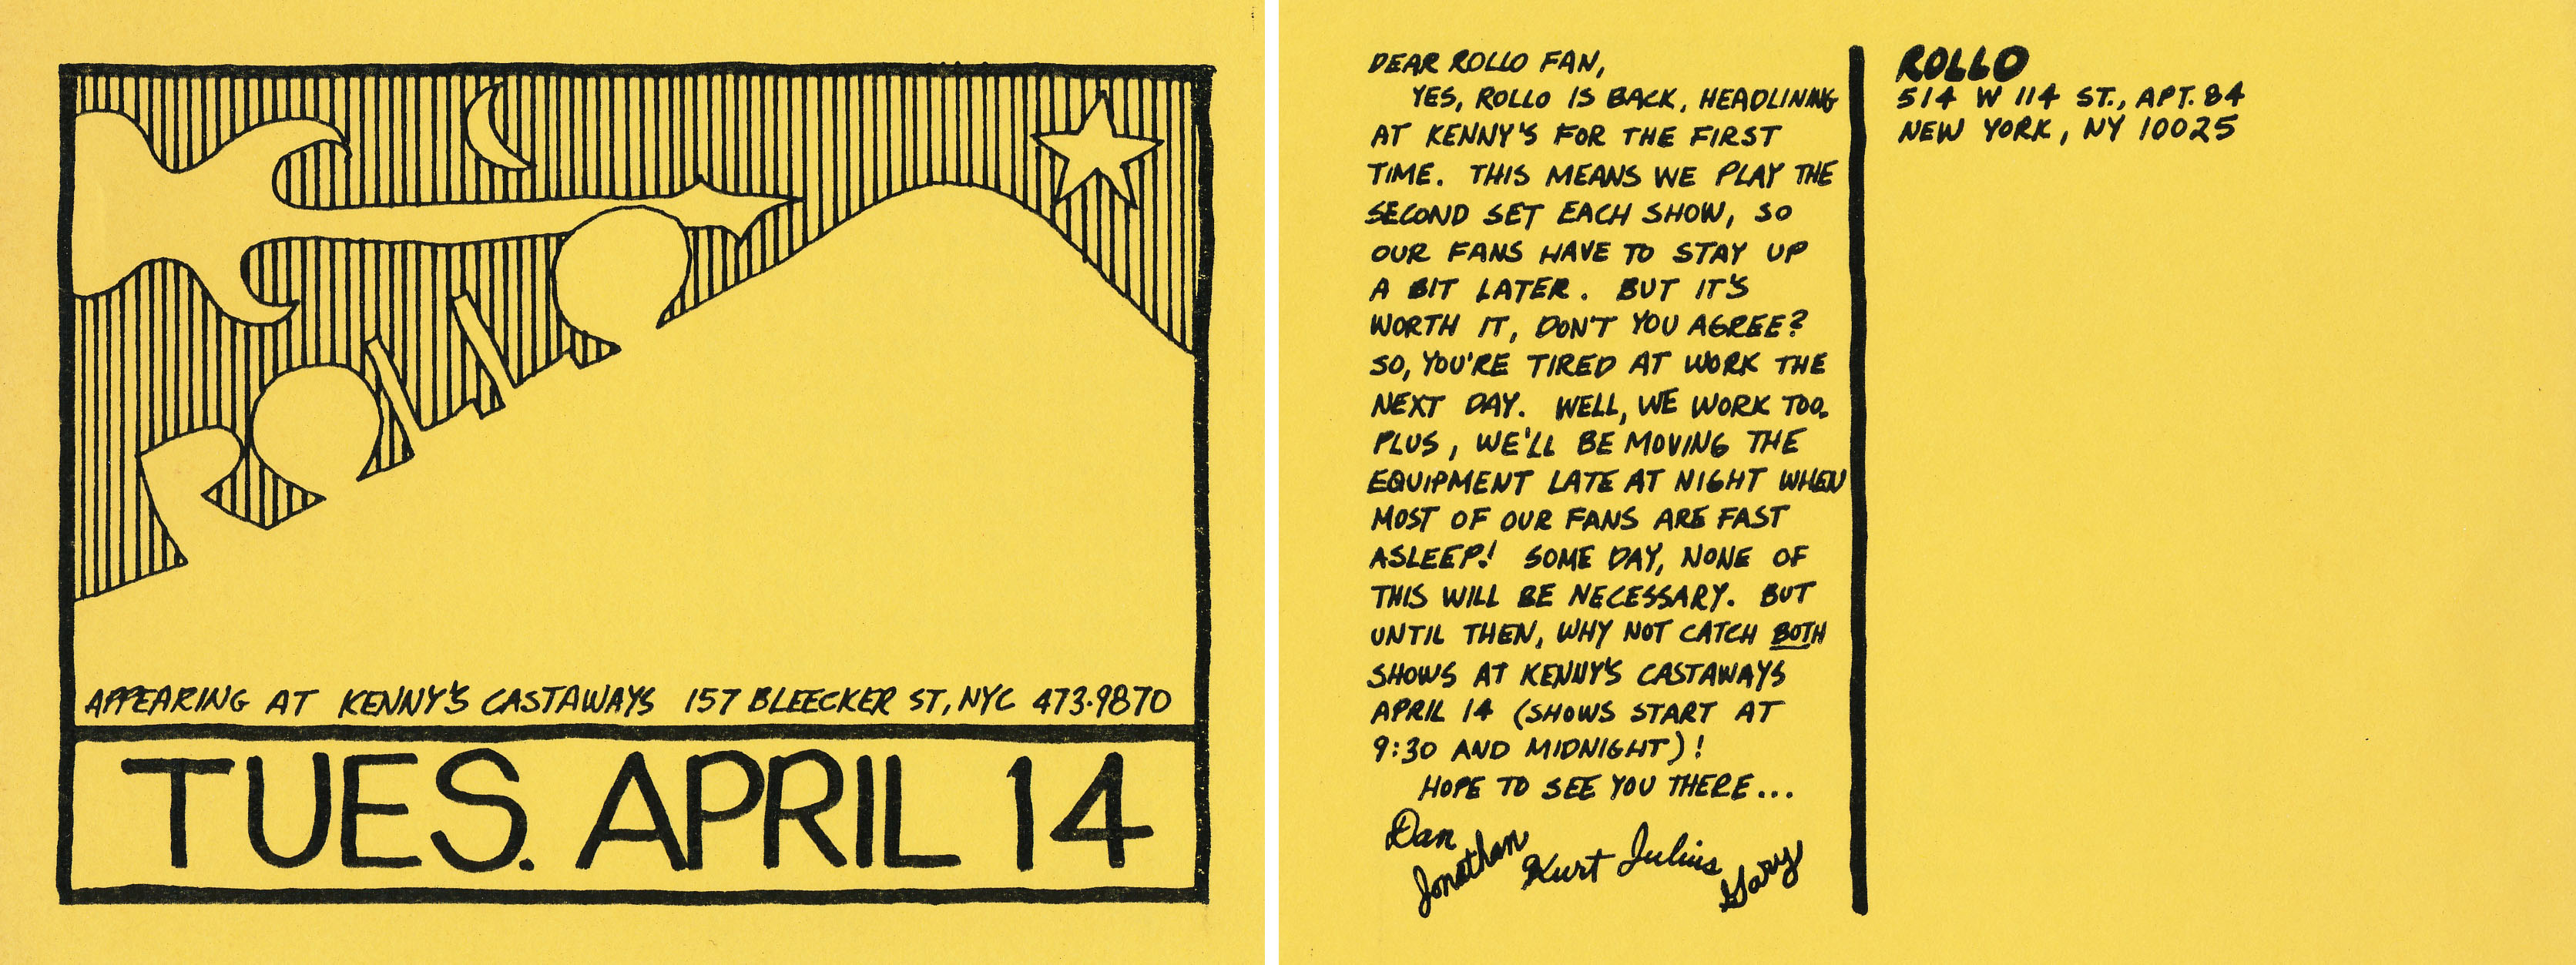 ROLLO
APPEARING AT KENNY'S CASTAWAYS 157 BLEECKER ST, NYC 473-9870
TUES. APRIL 14
DEAR ROLLO FAN,
YES, ROLLO IS BACK, HEADLINING
AT KENNY'S FOR THE FIRST
TIME. THIS MEANS WE PLAY THE
SECOND SET EACH SHOW, SO
OUR FANS HAVE TO STAY UP
A BIT LATER. BUT IT'S
WORTH IT, DON'T YOU AGREE?
SO, YOU'RE TIRED AT WORK THE
NEXT DAY. WELL, WE WORK TOO.
PLUS, WE'LL BE MOVING THE
EQUIPMENT LATE AT NIGHT WHEN
MOST OF OUR FANS ARE FAST
ASLEEP! SOME DAY, NONE OF
THIS WILL BE NECESSARY. BUT
UNTIL THEN, WHY NOT CATCH BOTH
SHOWS AT KENNY'S CASTAWAYS
APRIL 14 (SHOWS START AT
9:30 AND MIDNIGHT)!
HOPE TO SEE YOU THERE...
Dan
Jonathan Kurt Julius Gary
ROLLO
514 W 114 ST., APT. 84
NEW YORK, NY 10025